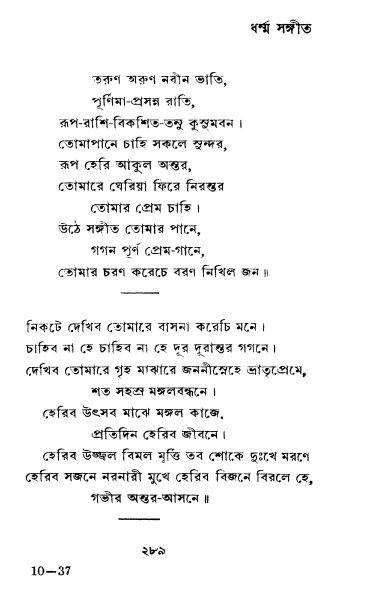 ধর্ম্ম সঙ্গীত
তরুণ অরুণ নবীন ভাতি,
পূর্ণিমা-প্রসন্ন রাতি,
রূপ-রাশি-বিকশিত-তনু কুসুমবন।
তোমাপানে চাহি সকলে সুন্দর,
রূপ হেরি আকুল অন্তর,
তোমারে ঘেরিয়া ফিরে নিরন্তর
তোমার প্রেম চাহি।
উঠে সঙ্গীত তোমার পানে,
গগন পূর্ণ প্রেম-গানে,
তোমার চরণ করেচে বরণ নিখিল জন॥
নিকটে দেখিব তোমারে বাসনা করেচি মনে।
চাহিব না হে চাহিব না হে দূর দূরান্তর গগনে।
দেখিব তোমারে গৃহ মাঝারে জননীস্নেহে ভ্রাতৃপ্রেমে,
শত সহস্র মঙ্গলবন্ধনে।
হেরিব উৎসব মাঝে মঙ্গল কাজে,
প্রতিদিন হেরিব জীবনে।
হেরিব উজ্জ্বল বিমল মূর্ত্তি তব শোকে দুঃখে মরণে
হেরিব সজনে নরনারী মুখে হেরিব বিজনে বিরলে হে,
গভীর অন্তর-আসনে॥
২৮৯
10—37